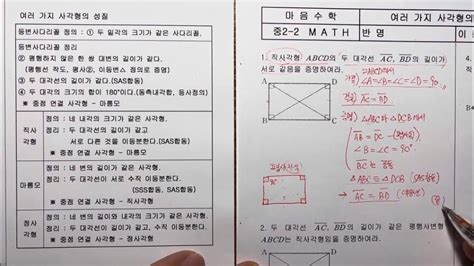 여러 가지 사각형의 성질
등변사다리꼴 정의 : ① 두 밑각의 크기가 같은 사다리꼴.
등변사다리꼴 정리
② 평행하지 않은 한 쌍 대변의 길이가 같다.
(평행선 작도, 평사②, 이등변△ 정의로 증명)
③ 두 대각선의 길이가 같다.(SAS합동)
④ 두 대각의 크기의 합이 180°이다.(동측내각합, 등사정의)
※ 중점 연결 사각형 - 마름모
직사
각형
정의 : 네 내각의 크기가 같은 사각형.
정리 : 두 대각선의 길이가 같고
서로 다른 것을 이등분한다.(SAS합동)
※ 중점 연결 사각형 - 마름모
마름모
정의 : 네 변의 길이가 같은 사각형.
정리 : 두 대각선이 서로 수직 이등분한다.
(SSS합동, SAS합동)
※ 중점 연결 사각형 - 직사각형
정사
각형
정의 : 네 변의 길이와 네 내각의 크기가 같은 사각형.
정리 : 두 대각선이 길이가 같고, 수직 이등분한다.
※ 중점 연결 사각형 - 정사각형
마 음 수 학
여러 가지 사각형
중2-2 M A T H
반 명
이
1. 직사각형 ABCD의 두 대각선 AC, BD의 길이가
서로 같음을 증명하여라.
□ABCD에서
가정) ∠A=∠B=∠C=∠D=90°
결론) AC = BD
증명) △ABC와 △DCB에서
AB = DC
∠B = ∠C = 90°
BC는 공통
△ABC ≡ △DCB (SAS합동)
→ AC = BD
A
D
B
C
90°
2. 두 대각선 AC, BD의 길이가 같은 평행사변형
ABCD는 직사각형임을 증명하여라.